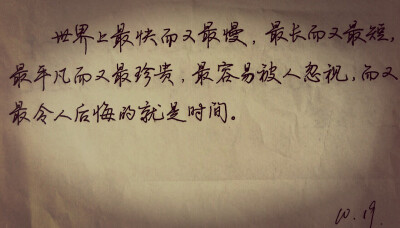 世界上最快而又最慢，最长而又最短，
最平凡而又最珍贵，最容易被人忽视，而又
最令人后悔的就是时间。
10.19.